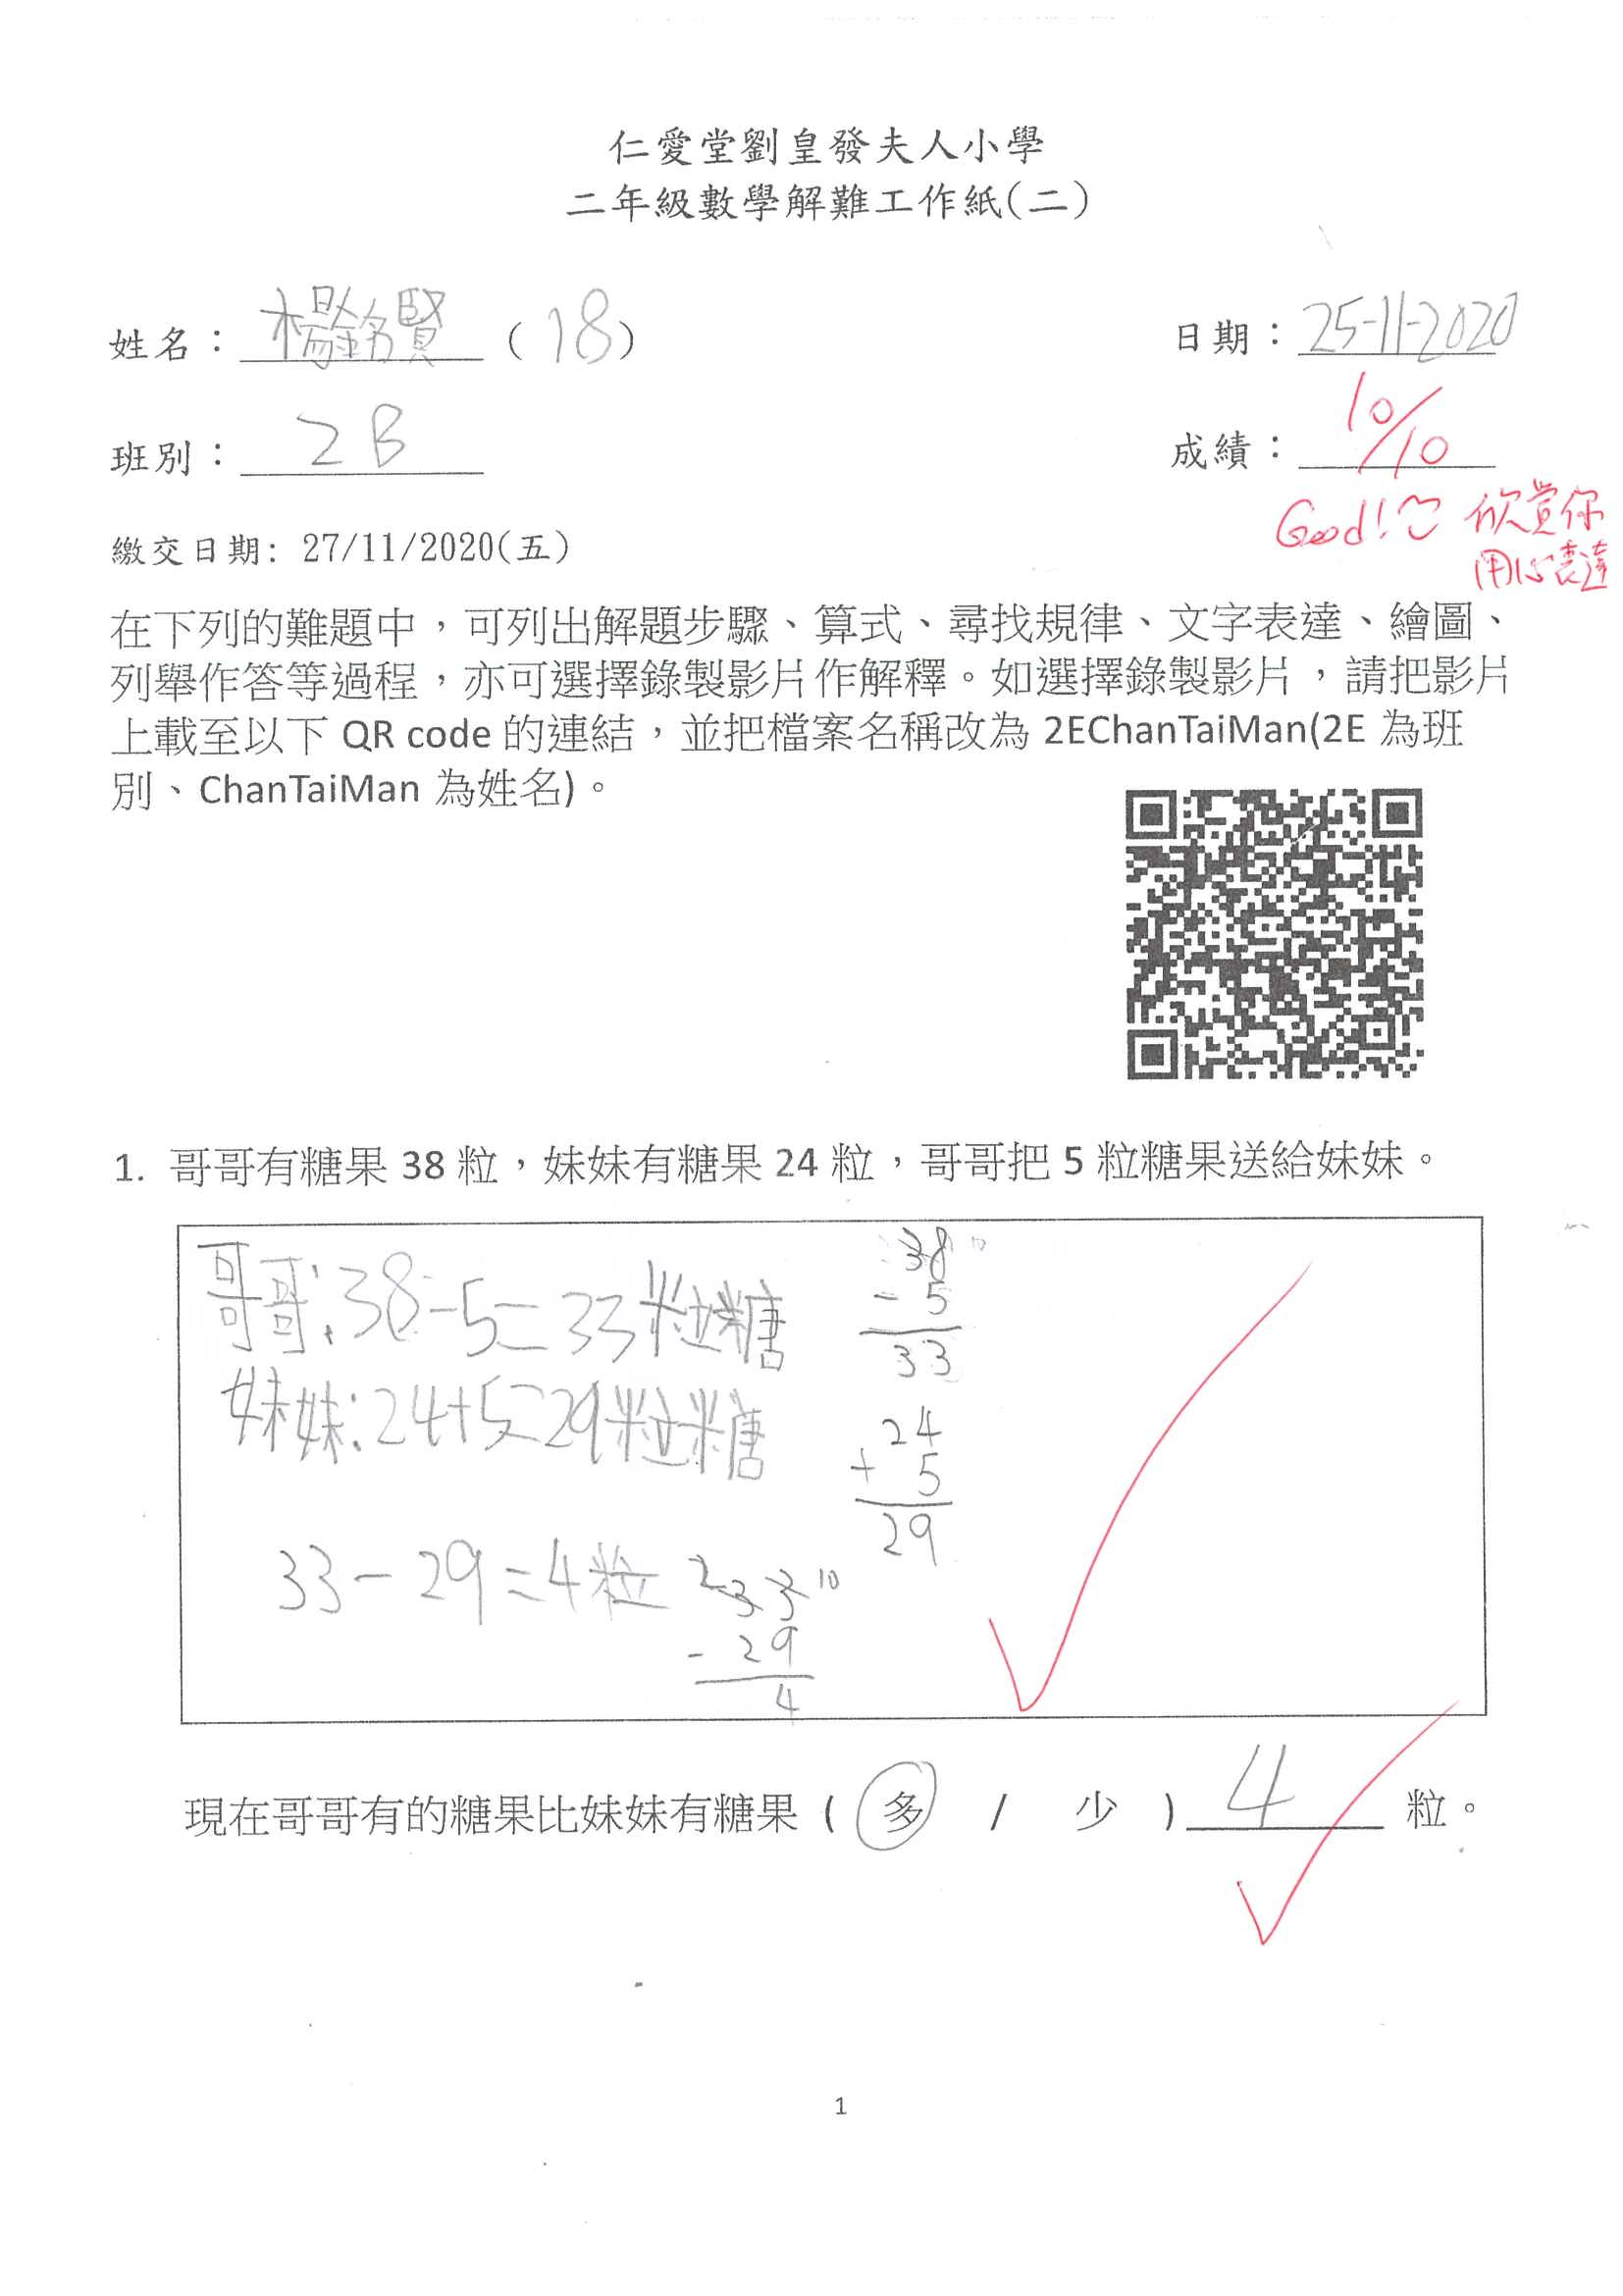 仁愛堂劉皇發夫人小學
二年級數學解難工作紙(二)
姓名：楊銘賢(18)
日期：25-11-2020
班別：2B
成績：10/10
Good! 欣賞你
用心表達
繳交日期: 27/11/2020(五)
在下列的難題中，可列出解題步驟、算式、尋找規律、文字表達、繪圖、
列舉作答等過程，亦可選擇錄製影片作解釋。如選擇錄製影片，請把影片
上載至以下 QR code 的連結，並把檔案名稱改為 2EChanTaiMan(2E 為班
別、ChanTaiMan 為姓名)。
1. 哥哥有糖果 38 粒，妹妹有糖果 24 粒，哥哥把 5 粒糖果送給妹妹。
哥哥:38-5=33粒糖
妹妹:24+5=29粒糖
33-29=4粒
38
- 5
33
24
+ 5
29
2 33 10
- 29
4
現在哥哥有的糖果比妹妹有糖果 ( 多 / 少 ) 4 粒。
1